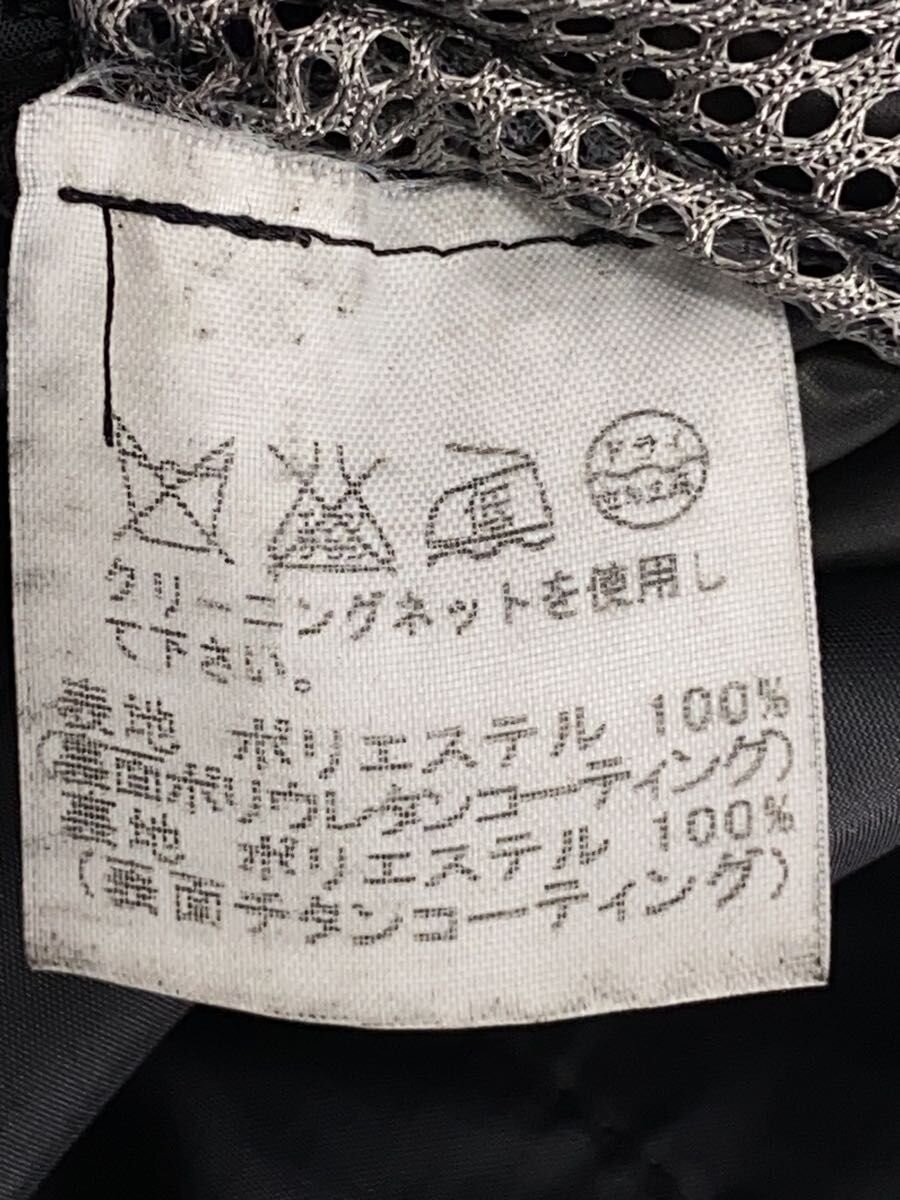 ドライ
セキユ系
クリーニングネットを使用し
て下さい。
表地 ポリエステル 100%
(裏面ポリウレタンコーティング)
裏地 ポリエステル 100%
(裏面チタンコーティング)